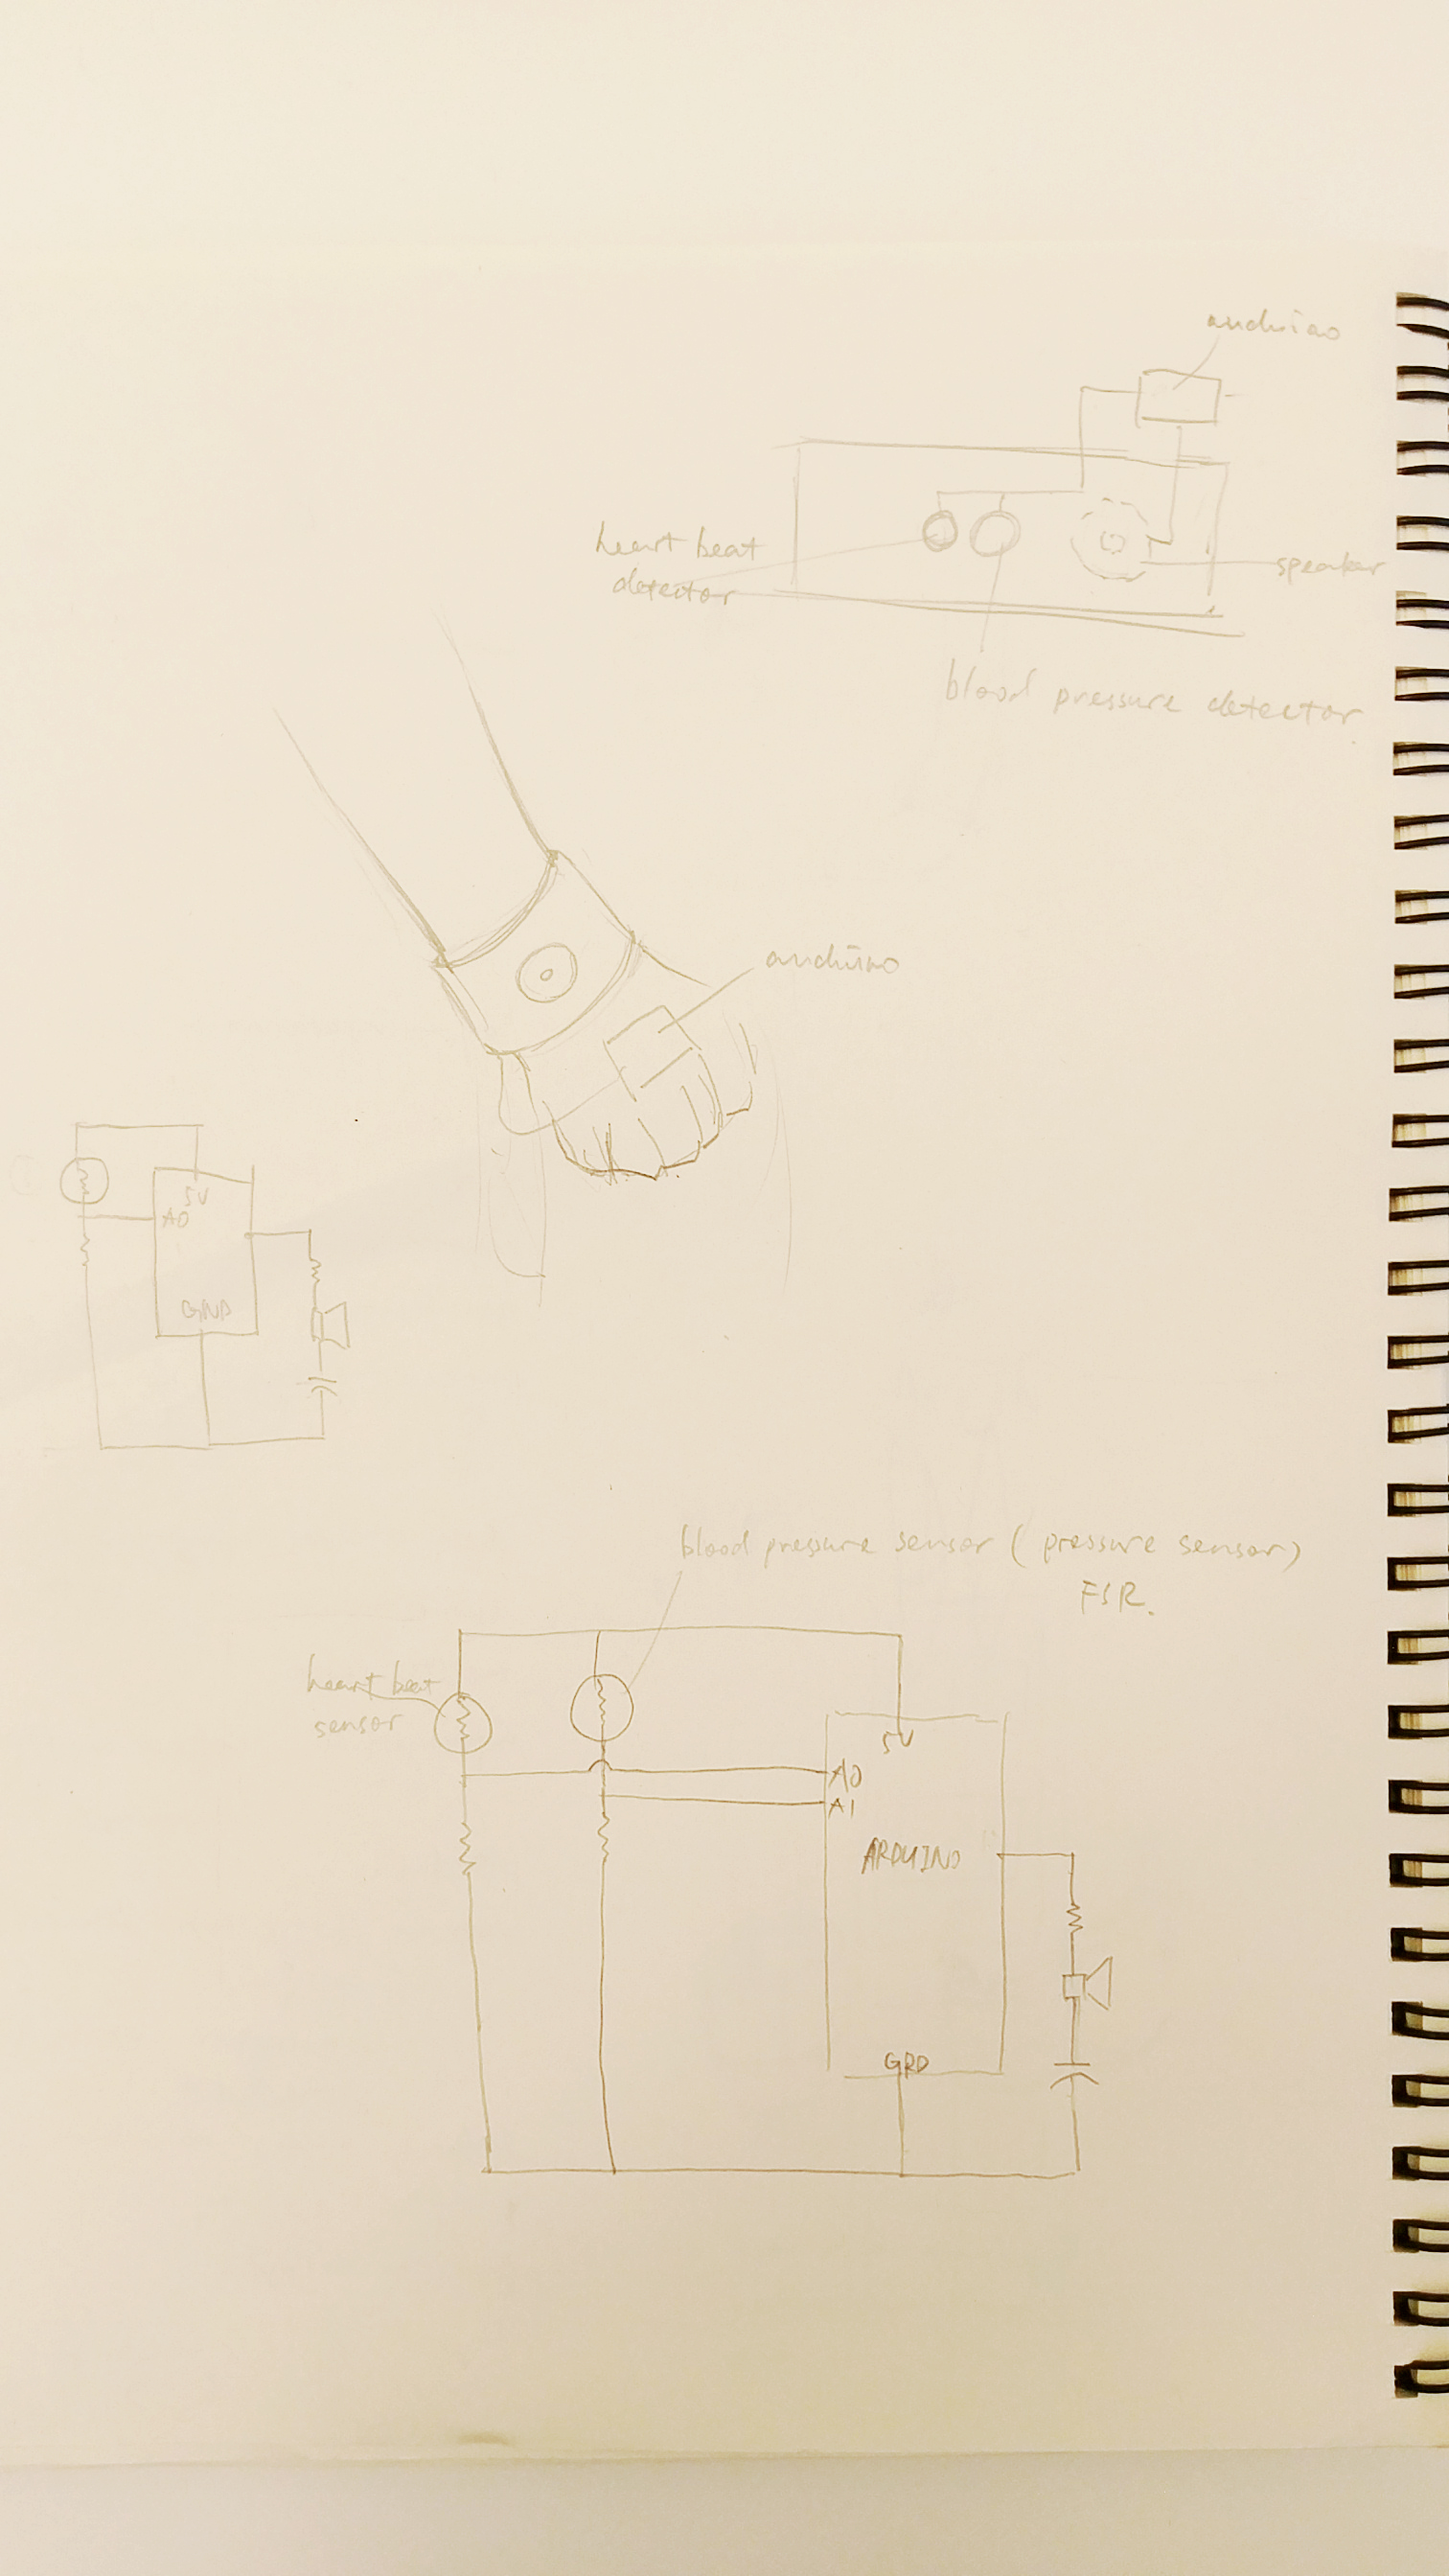 arduino
heart beat
detector
speaker
blood pressure detector
arduino
5V
A0
GND
blood pressure sensor ( pressure sensor)
FSR.
heart beat
sensor
5V
A0
A1
ARDUINO
GRD